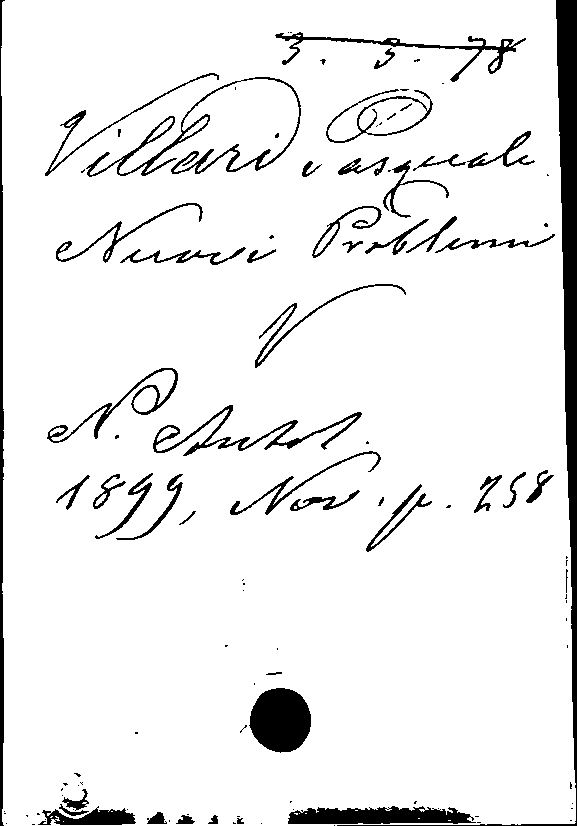 3. 3. 78
Villari, Pasquale
Nuovi Problemi
V
N. Antol.
1899, Nov. p. 258